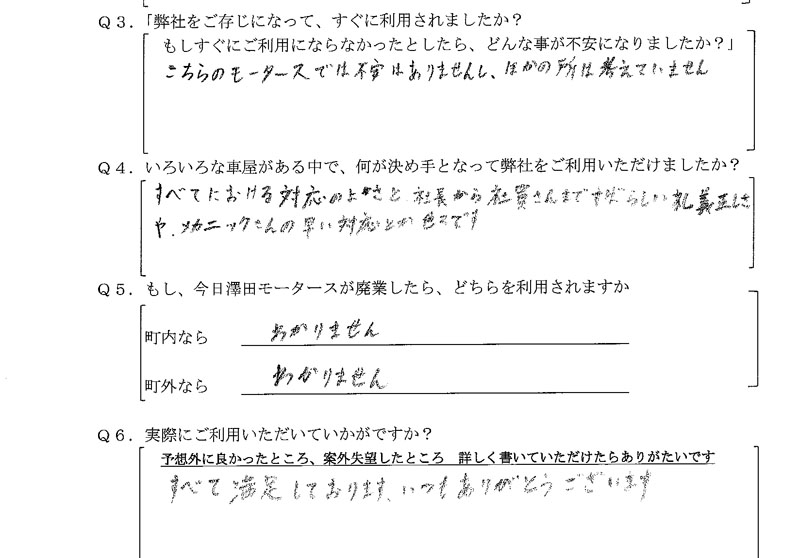 Q3.「弊社をご存じになって、すぐに利用されましたか?
もしすぐにご利用にならなかったとしたら、どんな事が不安になりましたか?」
こちらのモータースでは不安はありませんし、ほかの所は考えていません
Q4.いろいろな車屋がある中で、何が決め手となって弊社をご利用いただけましたか?
すべてにおける対応のよさと、社長から社員さんまですばらしい礼義正しさ
や、メカニックさんの早い対応とか色々です
Q5.もし、今日澤田モータースが廃業したら、どちらを利用されますか
町内なら わかりません
町外なら わかりません
Q6.実際にご利用いただいていかがですか?
予想外に良かったところ、案外失望したところ 詳しく書いていただけたらありがたいです
すべて満足しております、いつもありがとうございます